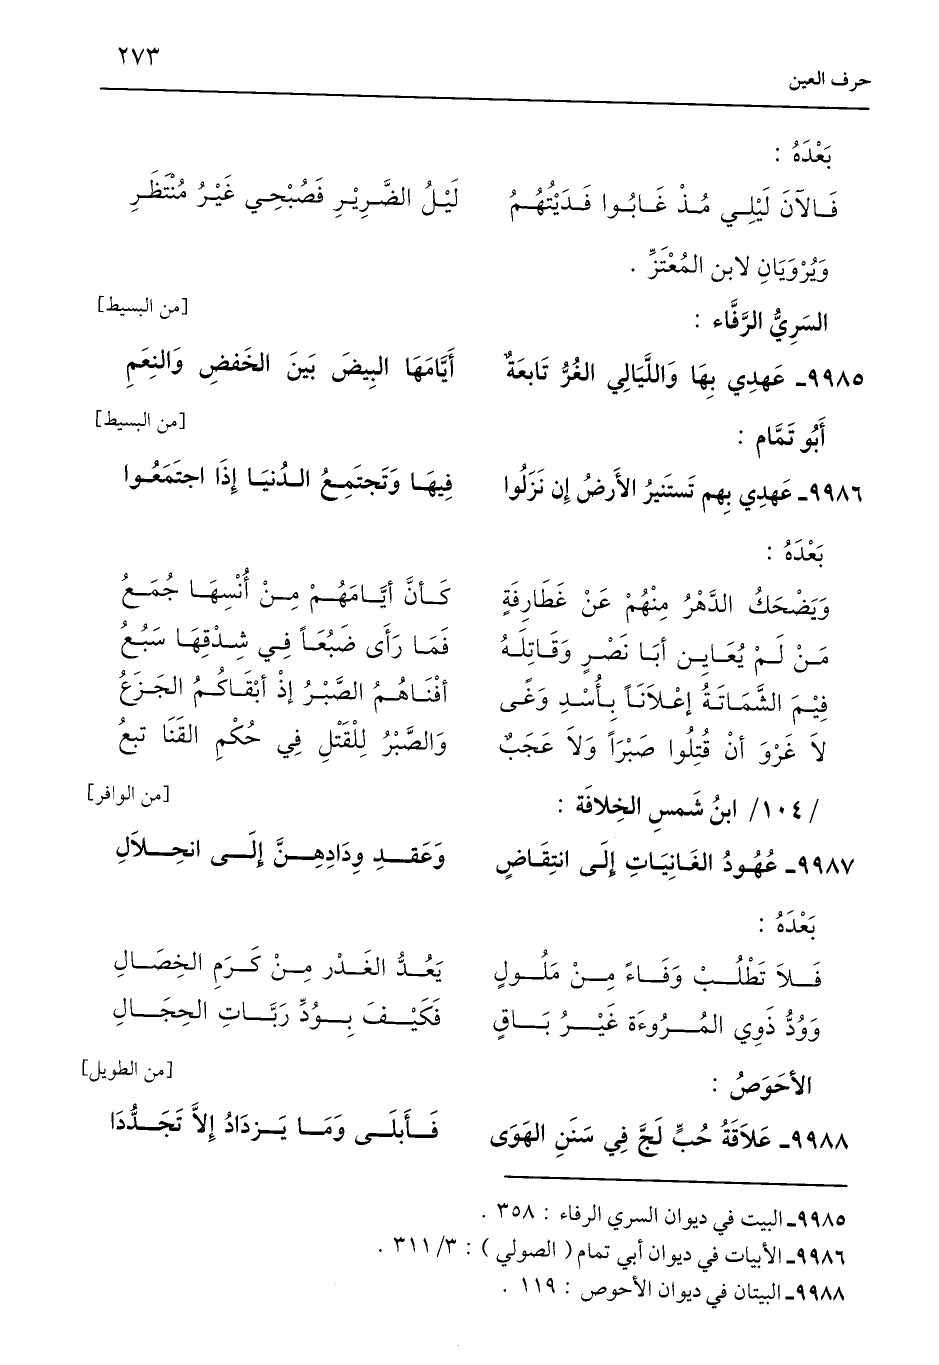 ٢٧٣
حرف العين
بَعْدَهُ :
فَالآنَ لَيْلِي مُذْ غَابُوا فَدَيْتُهُمُ لَيْلُ الضَّرِيْرِ فَصُبْحِي غَيْرُ مُنْتَظَرِ
وَيُرْوَيَانِ لابن المُعْتَزِّ .
السَرِيُّ الرَّفَّاء : [من البسيط]
٩٩٨٥ـ عَهدِي بِهَا وَاللَّيَالِي الغُرُّ تَابعَةٌ أَيَّامَهَا البِيضَ بَينَ الخَفضِ وَالنِعَمِ
أَبُو تَمَّام : [من البسيط]
٩٩٨٦ـ عَهدِي بِهِم تَستَنيرُ الأَرضُ إِن نَزَلُوا فِيهَا وَتَجتَمِعُ الدُنيَا إِذَا اجتَمَعُوا
بَعْدَهُ :
وَيَضْحَكُ الدَّهْرُ مِنْهُمْ عَنْ غَطَارِفَةِ كَأنَّ أيَّامَهُمْ مِنْ أُنْسِهَا جُمَعُ
مَنْ لَمْ يُعَايِن أبَا نَصْرٍ وَقَاتِلَهُ فَمَا رَأَى ضَبُعَاً فِي شِدْقِهَا سَبُعُ
فِيْمَ الشَّمَاتَةُ إعْلاَنَاً بِأُسْدِ وَغًى أفْنَاهُمُ الصَّبْرُ إذْ أبْقَاكُمُ الجَزَعُ
لاَ غَرْوَ أنْ قُتِلُوا صَبْرَاً وَلاَ عَجَبٌ وَالصَّبْرُ لِلْقَتْلِ فِي حُكْمِ القَنَا تبعُ
/١٠٤/ ابنُ شَمسِ الخِلافَة : [من الوافر]
٩٩٨٧ـ عُهُودُ الغَانِيَاتِ إِلَى انتِقَاضٍ وَعَقدِ وِدَادِهِنَّ إِلَى انحِلاَلِ
بَعْدَهُ :
فَلاَ تَطْلُبْ وَفَاءً مِنْ مَلُولٍ يَعُدُّ الغَدْر مِنْ كَرَمِ الخِصَالِ
وَوُدُّ ذَوِي المُرُوءَة غَيْرُ بَاقٍ فَكَيْفَ بِوُدِّ رَبَّاتِ الحِجَالِ
الأحَوَصُ : [من الطويل]
٩٩٨٨ـ عَلاَقَةُ حُبٍّ لَجَّ فِي سَنَنِ الهَوَى فَأَبلَى وَمَا يَزدَادُ إِلاَّ تَجَدُّدَا
٩٩٨٥ـ البيت في ديوان السري الرفاء : ٣٥٨ .
٩٩٨٦ـ الأبيات في ديوان أبي تمام ( الصولي ) : ٣١١/٣ .
٩٩٨٨ـ البيتان في ديوان الأحوص : ١١٩ .